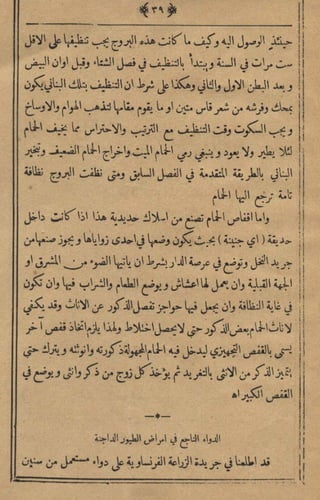 ﴿ ٣٩ ﴾
حينئذ الوصول اليه وكيف ما كانت هذه البروج يجب تنظيفها على الاقل
ست مرات في السنة ويبتدأ بالتنظيف في فصل الشتاء وقبل اوان البيض
وبعد البطن الاول والثاني وهكذا على شرط ان التنظيف بتلك البناني يكون
بمحك وفرشه من شعر قاس متين او ما يقوم مقامها لتذهب الهوام والاوساخ
ويجب السكوت وقت التنظيف مع الترتيب والاحتراس مما يخيف الحمام
لئلا يطير ولا يعود وينبغي رمي الحمام الميت واخراج الحمام الضعيف وتبخير
البناني بالطريقة المتقدمة في الفصل السابق ومتى نظفت البروج نظافة
تامة ترجع اليها الحمام
واما اقفاص الحمام تصنع من اسلاك حديدية هذا اذا كانت داخل
حديقة (اي جنينة) بحيث يكون وضعها في احدى زواياها ويجوز صنعها من
جريد النخل وتوضع في عرصة الدار بشرط ان ياتيها الضوء من المشرق او
الجهة القبلية وان يعمل لها اعشاش ويوضع الطعام والشراب فيها وان تكون
في غاية النظافة وان يجعل فيها حواجز تفصل الذكور عن الاناث وقد يكفي
لاناث الحمام بعض الذكور حتى لا يحصل اختلاط ولهذا يلزم اتخاذ قفص اخر
يسمى بالقفص التجهيزي ليدخل فيه الحمام المجهولة ذكورته وانوثته ويترك حتى
يتميز الذكر من الانثى بالتغريد ثم يؤخذ كل زوج من ذكر وانثى ويوضع في
القفص الكبير اه
الدواء الناجع في امراض الطيور الداجنة
قد اطلعنا في جريدة الزراعة الفرنساوية على دواء مستعمل من سنين